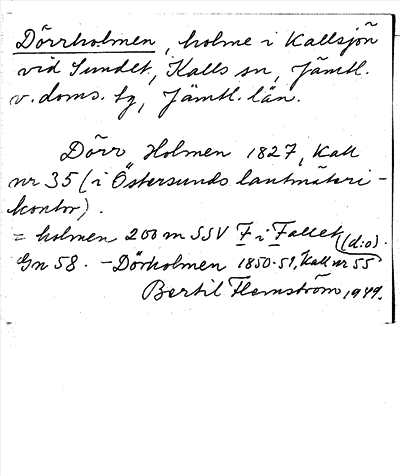 Dörrholmen, holme i Kallsjön
vid Sundet, Kalls sn, Jämtl.
v. doms. tg, Jämtl. län.
Dörr Holmen 1827, Kall
nr 35 (i Östersunds lantmäteri-
kontor).
= holmen 200 m SSV F i Fallet
(d:o).
Gn 58. - Dörholmen 1850-51, Kall nr 55
Bertil Flemström, 1949.